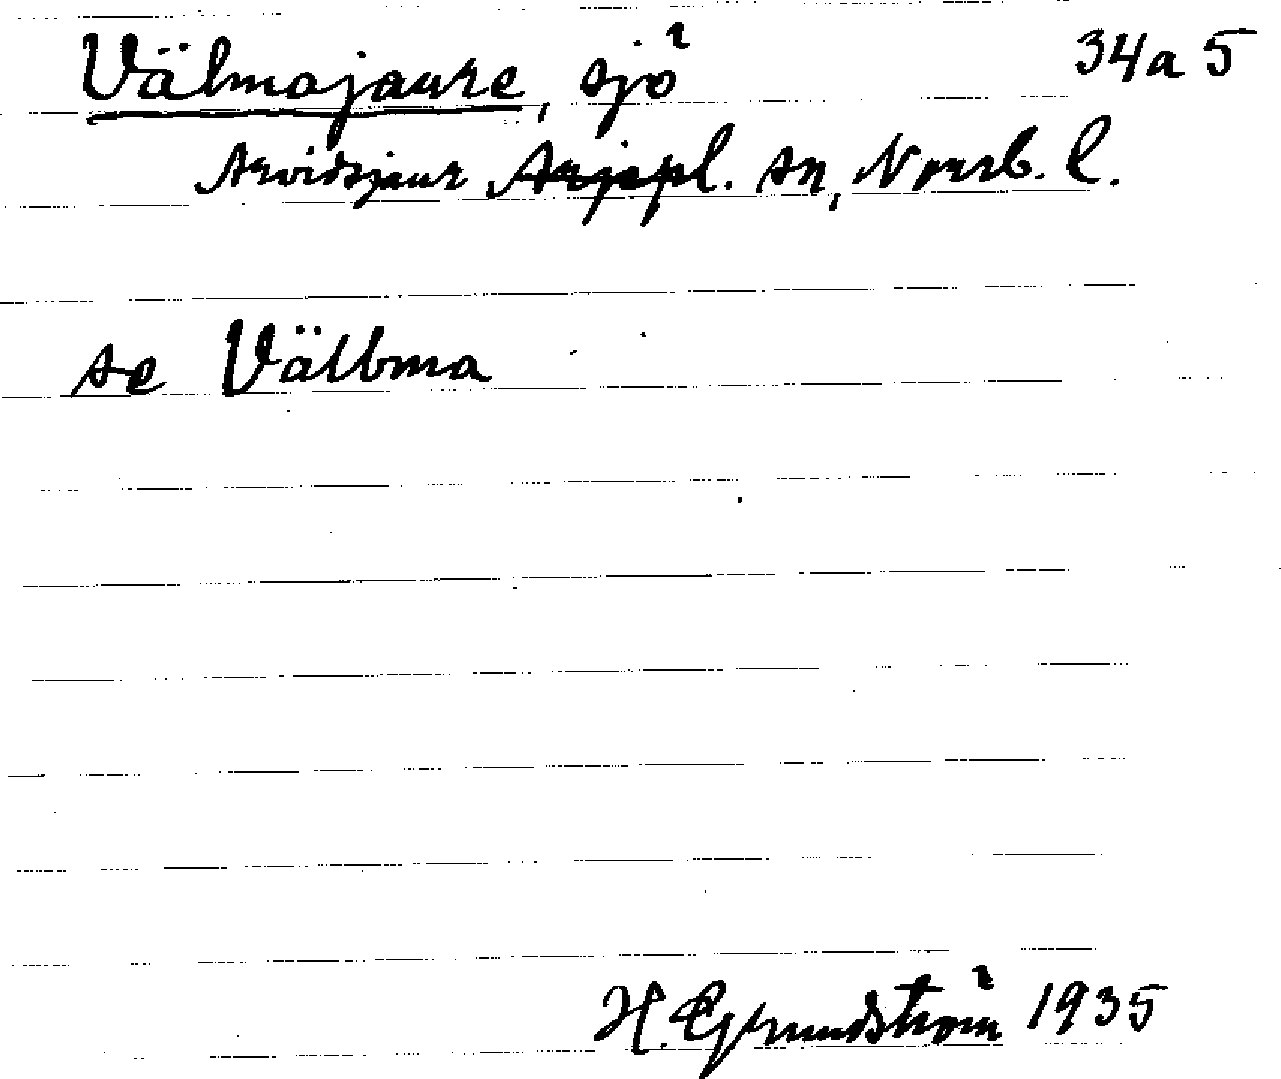 Välmajaure, sjö 34a 5
Arvidsjaur Arjepl. sn, Norrb. l.
se Välbma
H. Grundström 1935